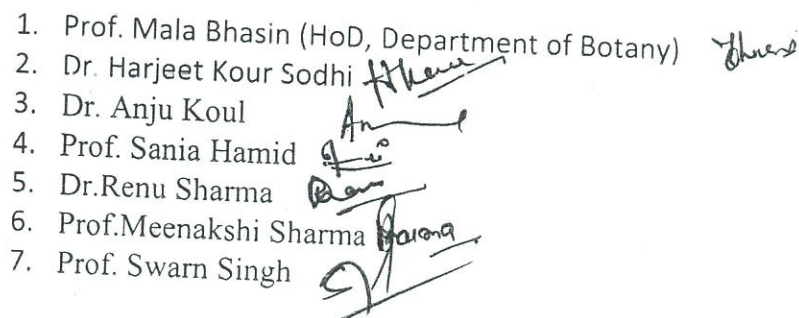 1. Prof. Mala Bhasin (HoD, Department of Botany)
2. Dr. Harjeet Kour Sodhi
3. Dr. Anju Koul
4. Prof. Sania Hamid
5. Dr.Renu Sharma
6. Prof.Meenakshi Sharma
7. Prof. Swarn Singh